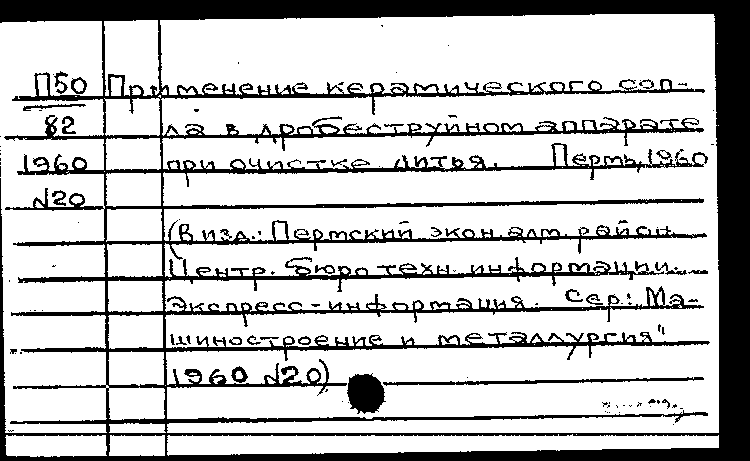 П50 Применение керамического соп-
82 ла в дробеструйном аппарате
1960 при очистке литья. Пермь, 1960
N20
(В изд.: Пермский экон. адм. район.
Центр. бюро техн. информации.
Экспресс-информация. Сер: Ма-
шиностроение и металлургия"
1960 N20)